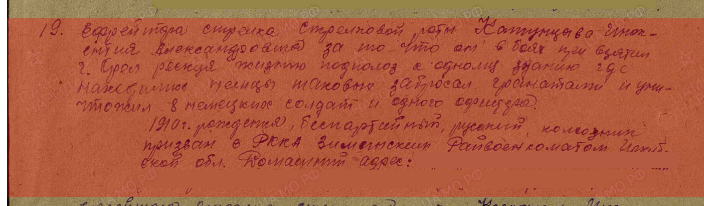 19. Ефрейтора стрелка стрелковой роты Катунцева Инок-
ентия Александровича за то что он в боях при взятии
г. Орол рескуя жизнью подполоз к одному зданию где
находились немцы таковых забросал гранатами и уни-
чтожил 8 немецких солдат и одного офицера.
1910 г. рождения, беспартийный, русский, колхозник
призван в РККА Зиминским Райвоенкоматом Иркут-
ской обл. Домашний адрес: